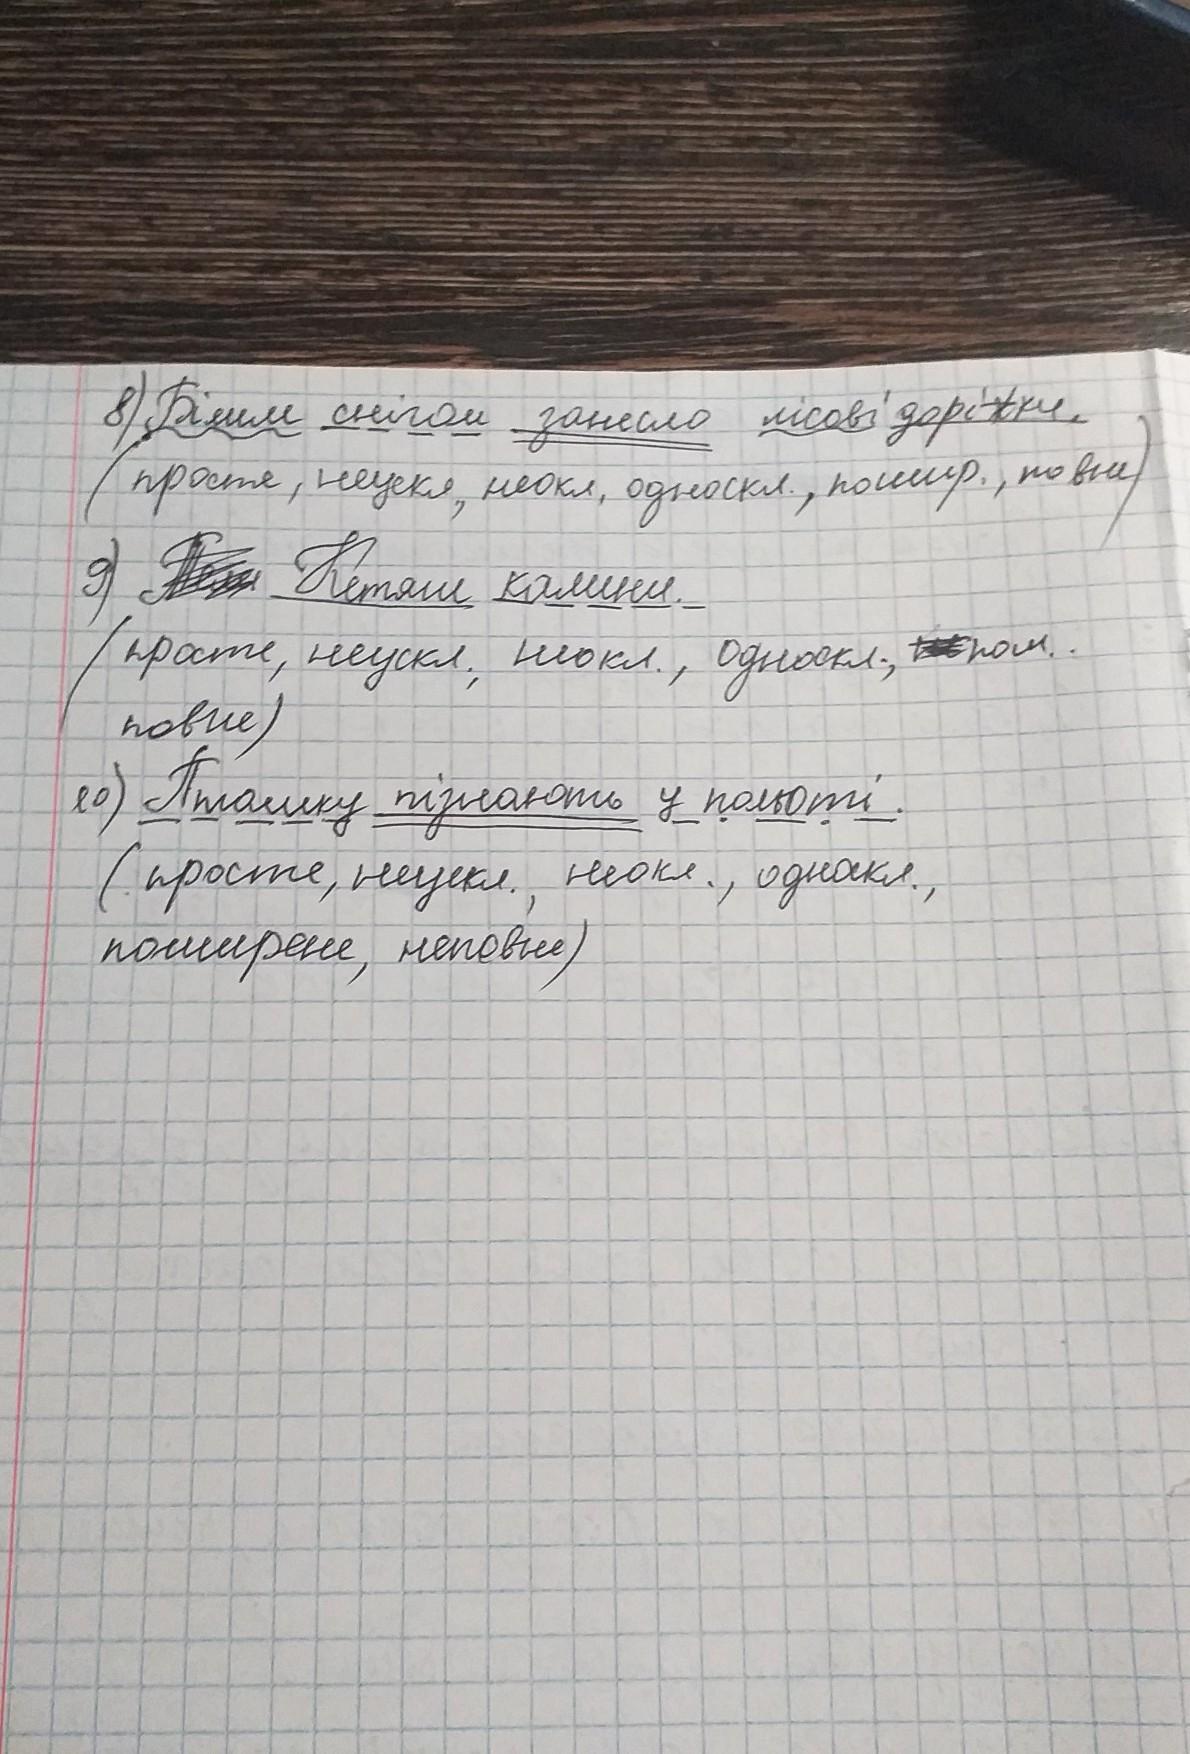 8) Білим снігом занесло лісові доріжки.
(просте, неускл, неокл, односкл., пошир., повне)
9) Китяги калини.
(просте, неускл., неокл., односкл., пош..
повне)
10) Пташку пізнають у польоті.
(просте, неускл., неокл., однокл.,
поширене, неповне)